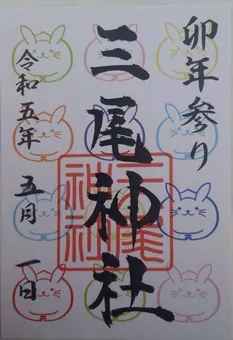 卯年参り
三尾神社
令和五年 五月 一日
三尾神社